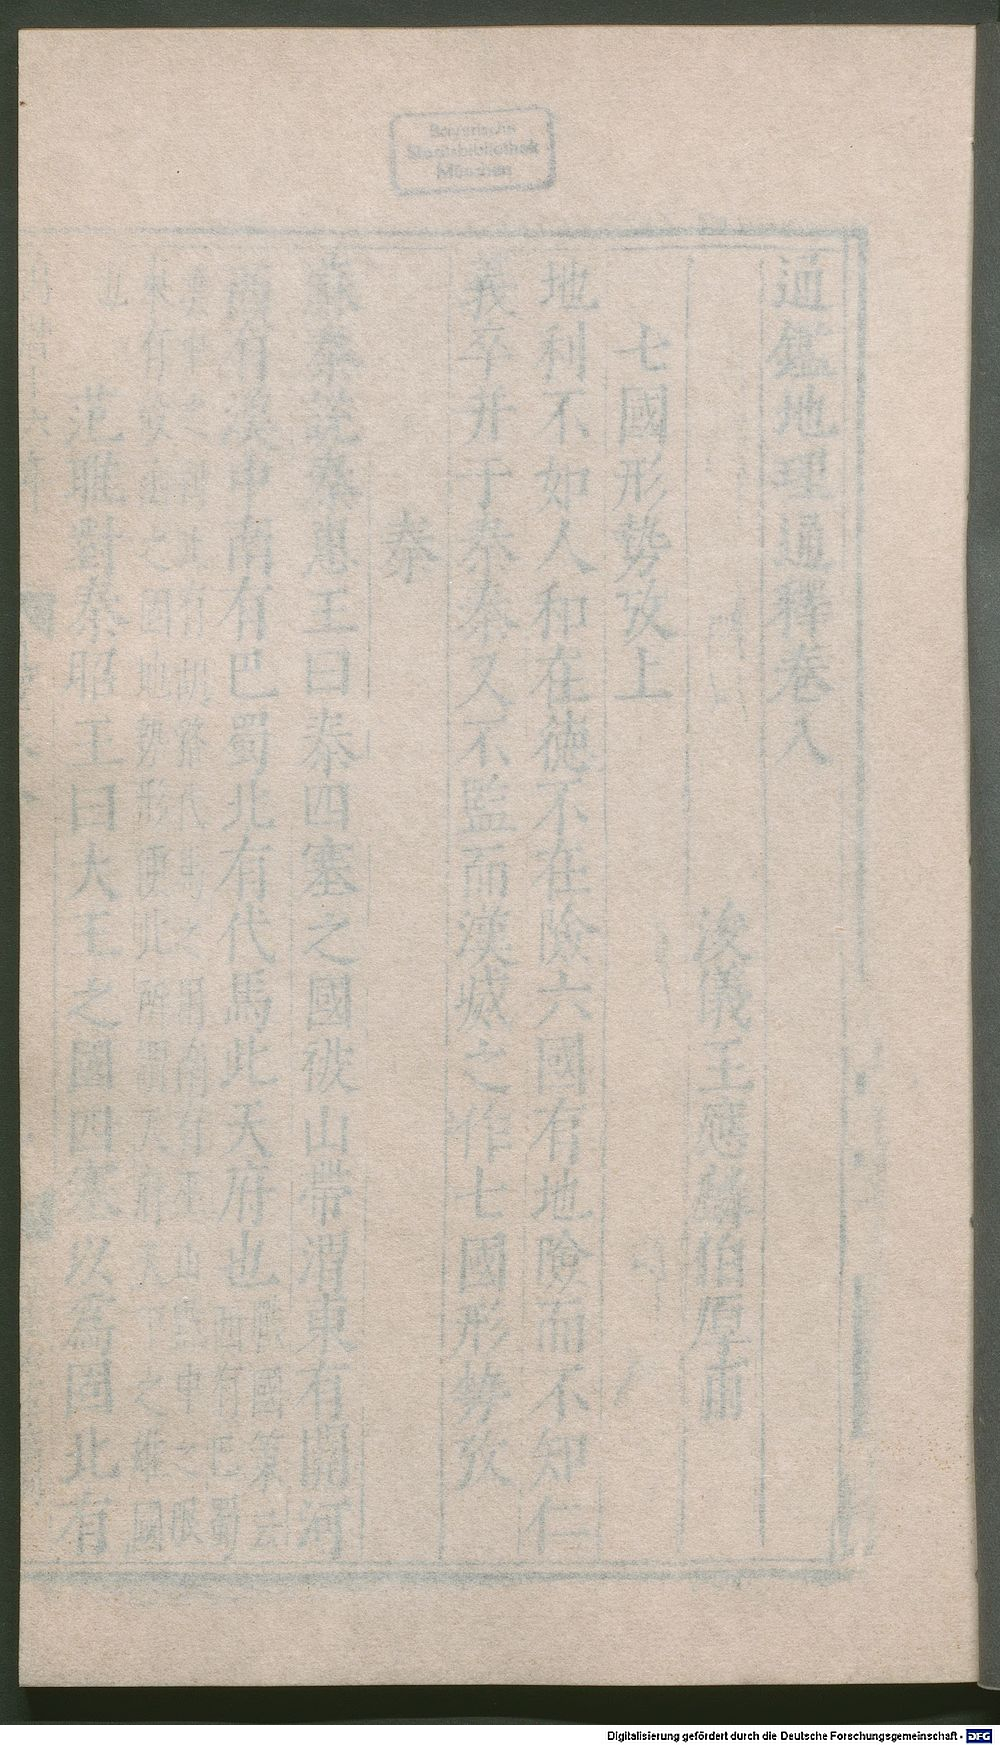 Bayerische
Staatsbibliothek
München
通鑑地理通釋卷八
浚儀王應麟伯厚甫
七國形勢攷上
地利不如人和在德不在險六國有地險而不知仁
義卒并于秦秦又不監而漢威之作七國形勢攷
秦
蘇秦說秦惠王曰秦四塞之國被山帶渭東有關河
西有漢中南有巴蜀北有代馬此天府也戰國策云
西有巴蜀
漢中之利北有胡貉代馬之用南有巫山黔中之限
東有殽函之固地勢形便此所謂天府天下之雄國
也
范雎對秦昭王曰大王之國四塞以爲固北有
Digitalisierung gefördert durch die Deutsche Forschungsgemeinschaft - DFG